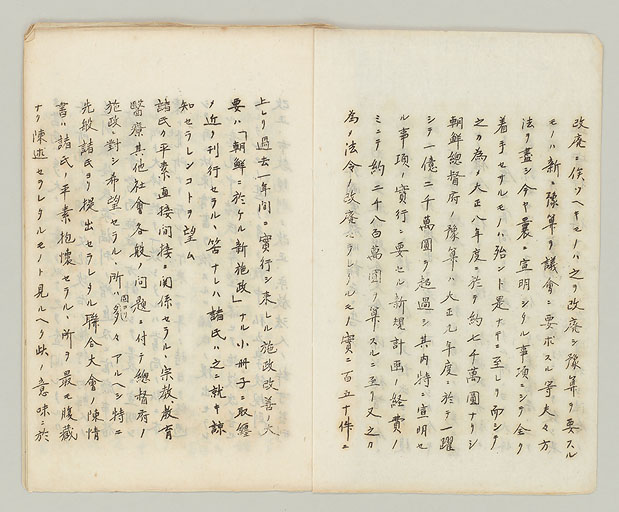 改廃ニ俟ツヘキモノハ之ヲ改廃シ豫算ヲ要スル
モノハ新ニ豫算ヲ議會ニ要求スル等夫々方
法ヲ盡シ今ヤ曩ニ宣明シタル事項ニシテ全ク
着手セサルモノハ殆ント是ナキニ至レリ而シテ
之カ為メ大正八年度ニ於テ約七千萬圓ナリシ
朝鮮總督府ノ豫算ハ大正九年度ニ於テ一躍
シテ一億二千萬圓ヲ超過シ其内特ニ宣明セ
ル事項ノ實行ニ要セル新規計画ノ経費ノ
ミニテ約二千八百萬圓ヲ算スルニ至リ又之カ
為メ法令ノ改廃セラレタルモノ實ニ百五十件ニ
上レリ過去一年間ニ實行シ来レル施政改善ノ大
要ハ「朝鮮ニ於ケル新施政」ナル小冊子ニ取纒
メ近ク刊行セラルヽ筈ナレハ諸氏ハ之ニ就キ諒
知セラレンコトヲ望ム
諸氏カ平素直接間接ニ関係セラルヽ宗教、教育
醫療其他社會各般ノ問題ニ付テ總督府ノ
施政ニ對シ希望セラルヽ所ハ多々アルヘシ特ニ
先般諸氏ヨリ提出セラレタル聯合大會ノ陳情
書ハ諸氏ノ平素抱懐セラルヽ所ヲ最モ腹蔵
ナク陳述セラレタルモノト見ルヘク此ノ意味ニ於